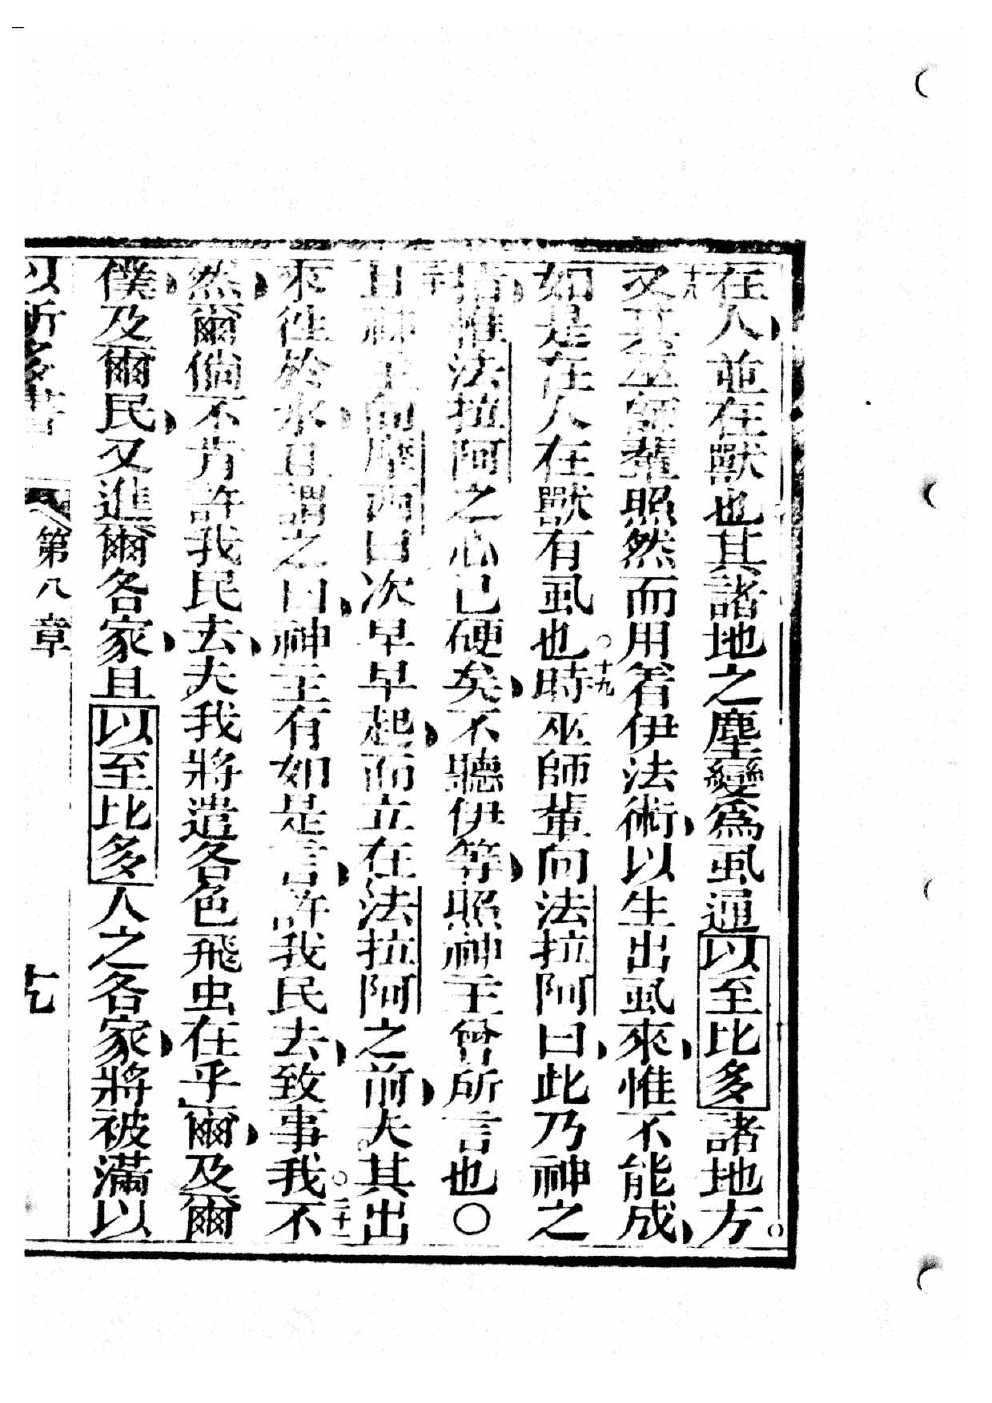 在人並在獸也其諸地之塵變為虱通以至比多諸地方○
十八又其巫師輩照然而用着伊法術以生出虱來惟不能成
如是在人在獸有虱也○十九時巫師輩向法拉阿曰此乃神之
指惟法拉阿之心已硬矣不聽伊等照神主曾所言也○
二十且神主向摩西曰次早早起而立在法拉阿之前夫其出
來徃於水且謂之曰神主有如是言許我民去致事我○二十一不
然爾倘不肯許我民去夫我將遣各色飛虫在乎爾及爾
僕及爾民又進爾各家且以至比多人之各家將被滿以
第八章